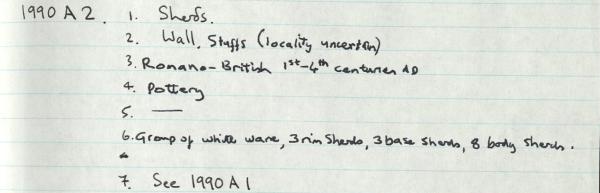 1990 A 2. 1. Sherds.
2. Wall, Staffs (locality uncertain)
3. Romano-British 1st-4th centuries AD
4. Pottery
5. —
6. Group of white ware, 3 rim sherds, 3 base sherds, 8 body sherds.
7. See 1990 A 1